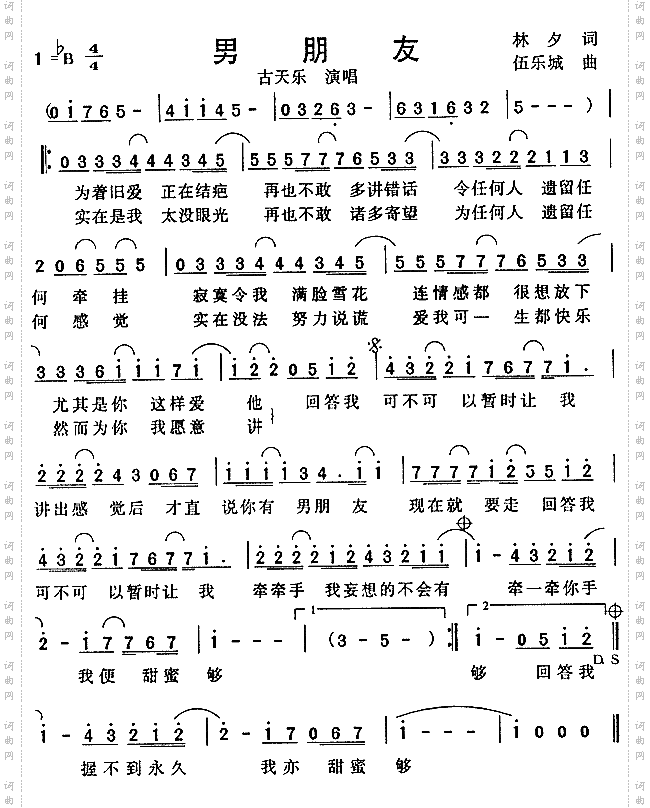 1=♭B 4/4 男朋友 林夕 词
伍乐城 曲
古天乐 演唱
(0 i 7 6 5 - | 4 i i 4 5 - | 0 3 2 6 3 - | 6 3 1 6 3 2 | 5 - - - )
‖: 0 3 3 3 4 4 4 3 4 5 | 5 5 5 7 7 7 6 5 3 3 | 0 3 3 3 2 2 2 1 1 3
为着旧爱 正在结疤 再也不敢 多讲错话 令任何人 遗留任
实在是我 太没眼光 再也不敢 诸多寄望 为任何人 遗留任
2 0 6 5 5 5 | 0 3 3 3 4 4 4 3 4 5 | 5 5 5 7 7 7 6 5 3 3
何 牵 挂 寂寞令我 满脸雪花 连情感都 很想放下
何 感 觉 实在没法 努力说谎 爱我可一 生都快乐
3 3 3 6 i i i 7 i | i 2 2 0 5 i 2 | 4 3 2 2 i 7 6 7 7 i .
尤其是你 这样爱 他 回答我 可不可 以暂时让 我
然而为你 我愿意 讲
2 2 2 2 4 3 0 6 7 | i i i i 3 4 . i i | 7 7 7 7 i 2 0 5 i 2
讲出感 觉后 才直 说你有 男朋 友 现在就 要走 回答我
4 3 2 2 i 7 6 7 7 i . | 2 2 2 2 i 2 4 3 2 2 i | i - 4 3 2 i 2
可不可 以暂时让 我 牵牵手 我妄想的不会有 牵一牵你手
1 2
2 - i 7 7 6 7 | i - - - | ( 3 - 5 - ) :‖ i - 0 5 i 2 ‖
D.S
我便 甜蜜 够 够 回答我
i - 4 3 2 i 2 | 2 - i 7 0 6 7 | i - - - | i 0 0 0 ‖
握不到永久 我亦 甜蜜 够
词曲网